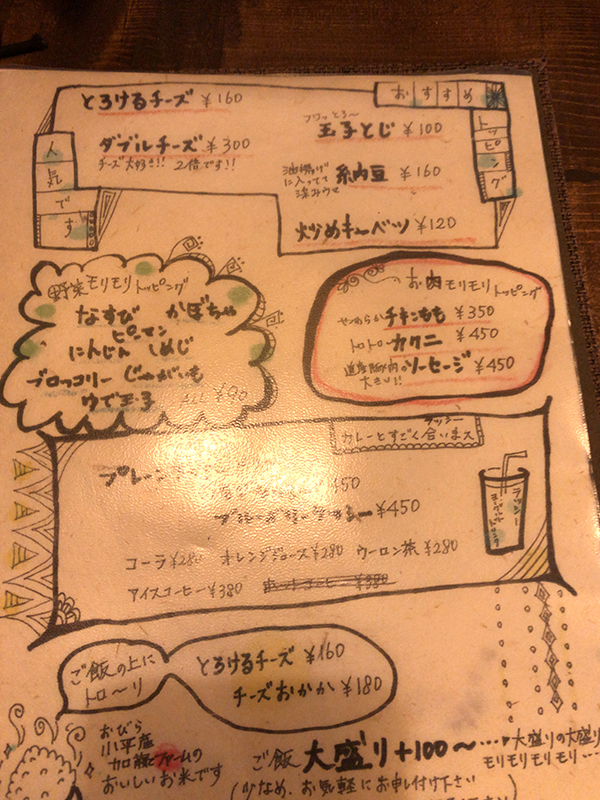 おすすめ
トッピング
人気です
とろけるチーズ ¥160
ダブルチーズ ¥300
チーズ大好き!! 2倍です!!
フワッとろ〜
玉子とじ ¥100
油揚げ
に入ってて
糸内豆 ¥160
炒めキャベツ ¥120
野菜モリモリトッピング
なすび かぼちゃ
ピーマン
にんじん しめじ
ブロッコリー じゃがいも
ゆで玉子
ALL ¥90
お肉モリモリトッピング
やわらかチキンもも ¥350
トロトロカクニ ¥450
道産豚肉のソーセージ ¥450
大きい!!
ラッシー
カレーとすごく合いまス
プレーン
¥450
ラッシー
ヨーグルトドリンク
コーラ ¥280 オレンジジュース ¥280 ウーロン茶 ¥280
アイスコーヒー ¥380 ホットコーヒー ¥380
ご飯の上に
トロ〜リ
とろけるチーズ ¥160
チーズおかか ¥180
おびら
小平産
加藤ファームの
おいしいお米です
ご飯 大盛り+100〜…
大盛りの大盛り
モリモリモリ…
(少なめ、お気軽にお申し付け下さい